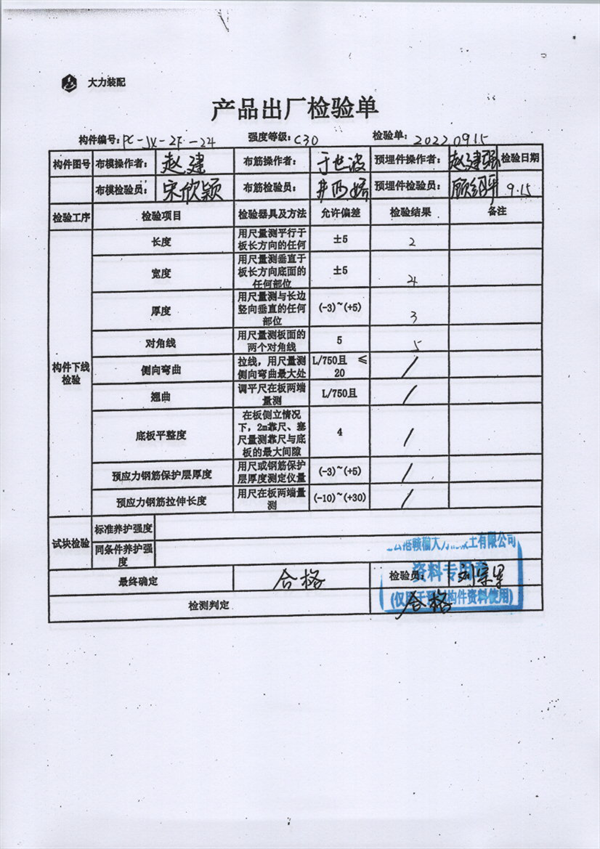 大力装配
产品出厂检验单
构件编号: PC-JX-2F-24 强度等级: C30 检验单: 20220915
构件图号 布模操作者: 赵建 布筋操作者: 于世波 预埋件操作者: 赵建强 检验日期
布模检验员: 宋欣颖 布筋检验员: 预埋件检验员: 9.15
检验工序 检验项目 检验器具及方法 允许偏差 检验结果 备注
构件下线检验
长度 用尺量测平行于板长方向的任何 ±5 2
宽度 用尺量测垂直于板长方向底面的任何部位 ±5 4
厚度 用尺量测与长边竖向垂直的任何部位 (-3)~(+5) 3
对角线 用尺量测板面的两个对角线 5 5
侧向弯曲 拉线，用尺量测侧向弯曲最大处 L/750且 ≤20 /
翘曲 调平尺在板两端量测 L/750且 /
底板平整度 在板侧立情况下，2m靠尺、塞尺量测靠尺与底板的最大间隙 4 /
预应力钢筋保护层厚度 用尺或钢筋保护层厚度测定仪量 (-3)~(+5) /
预应力钢筋拉伸长度 用尺在板两端量测 (-10)~(+30) /
试块检验 标准养护强度
同条件养护强度
最终确定 合格 检验员:
检测判定 合格
港赣榆大力 土有限公司
资料专用
(仅 构件资料使用)